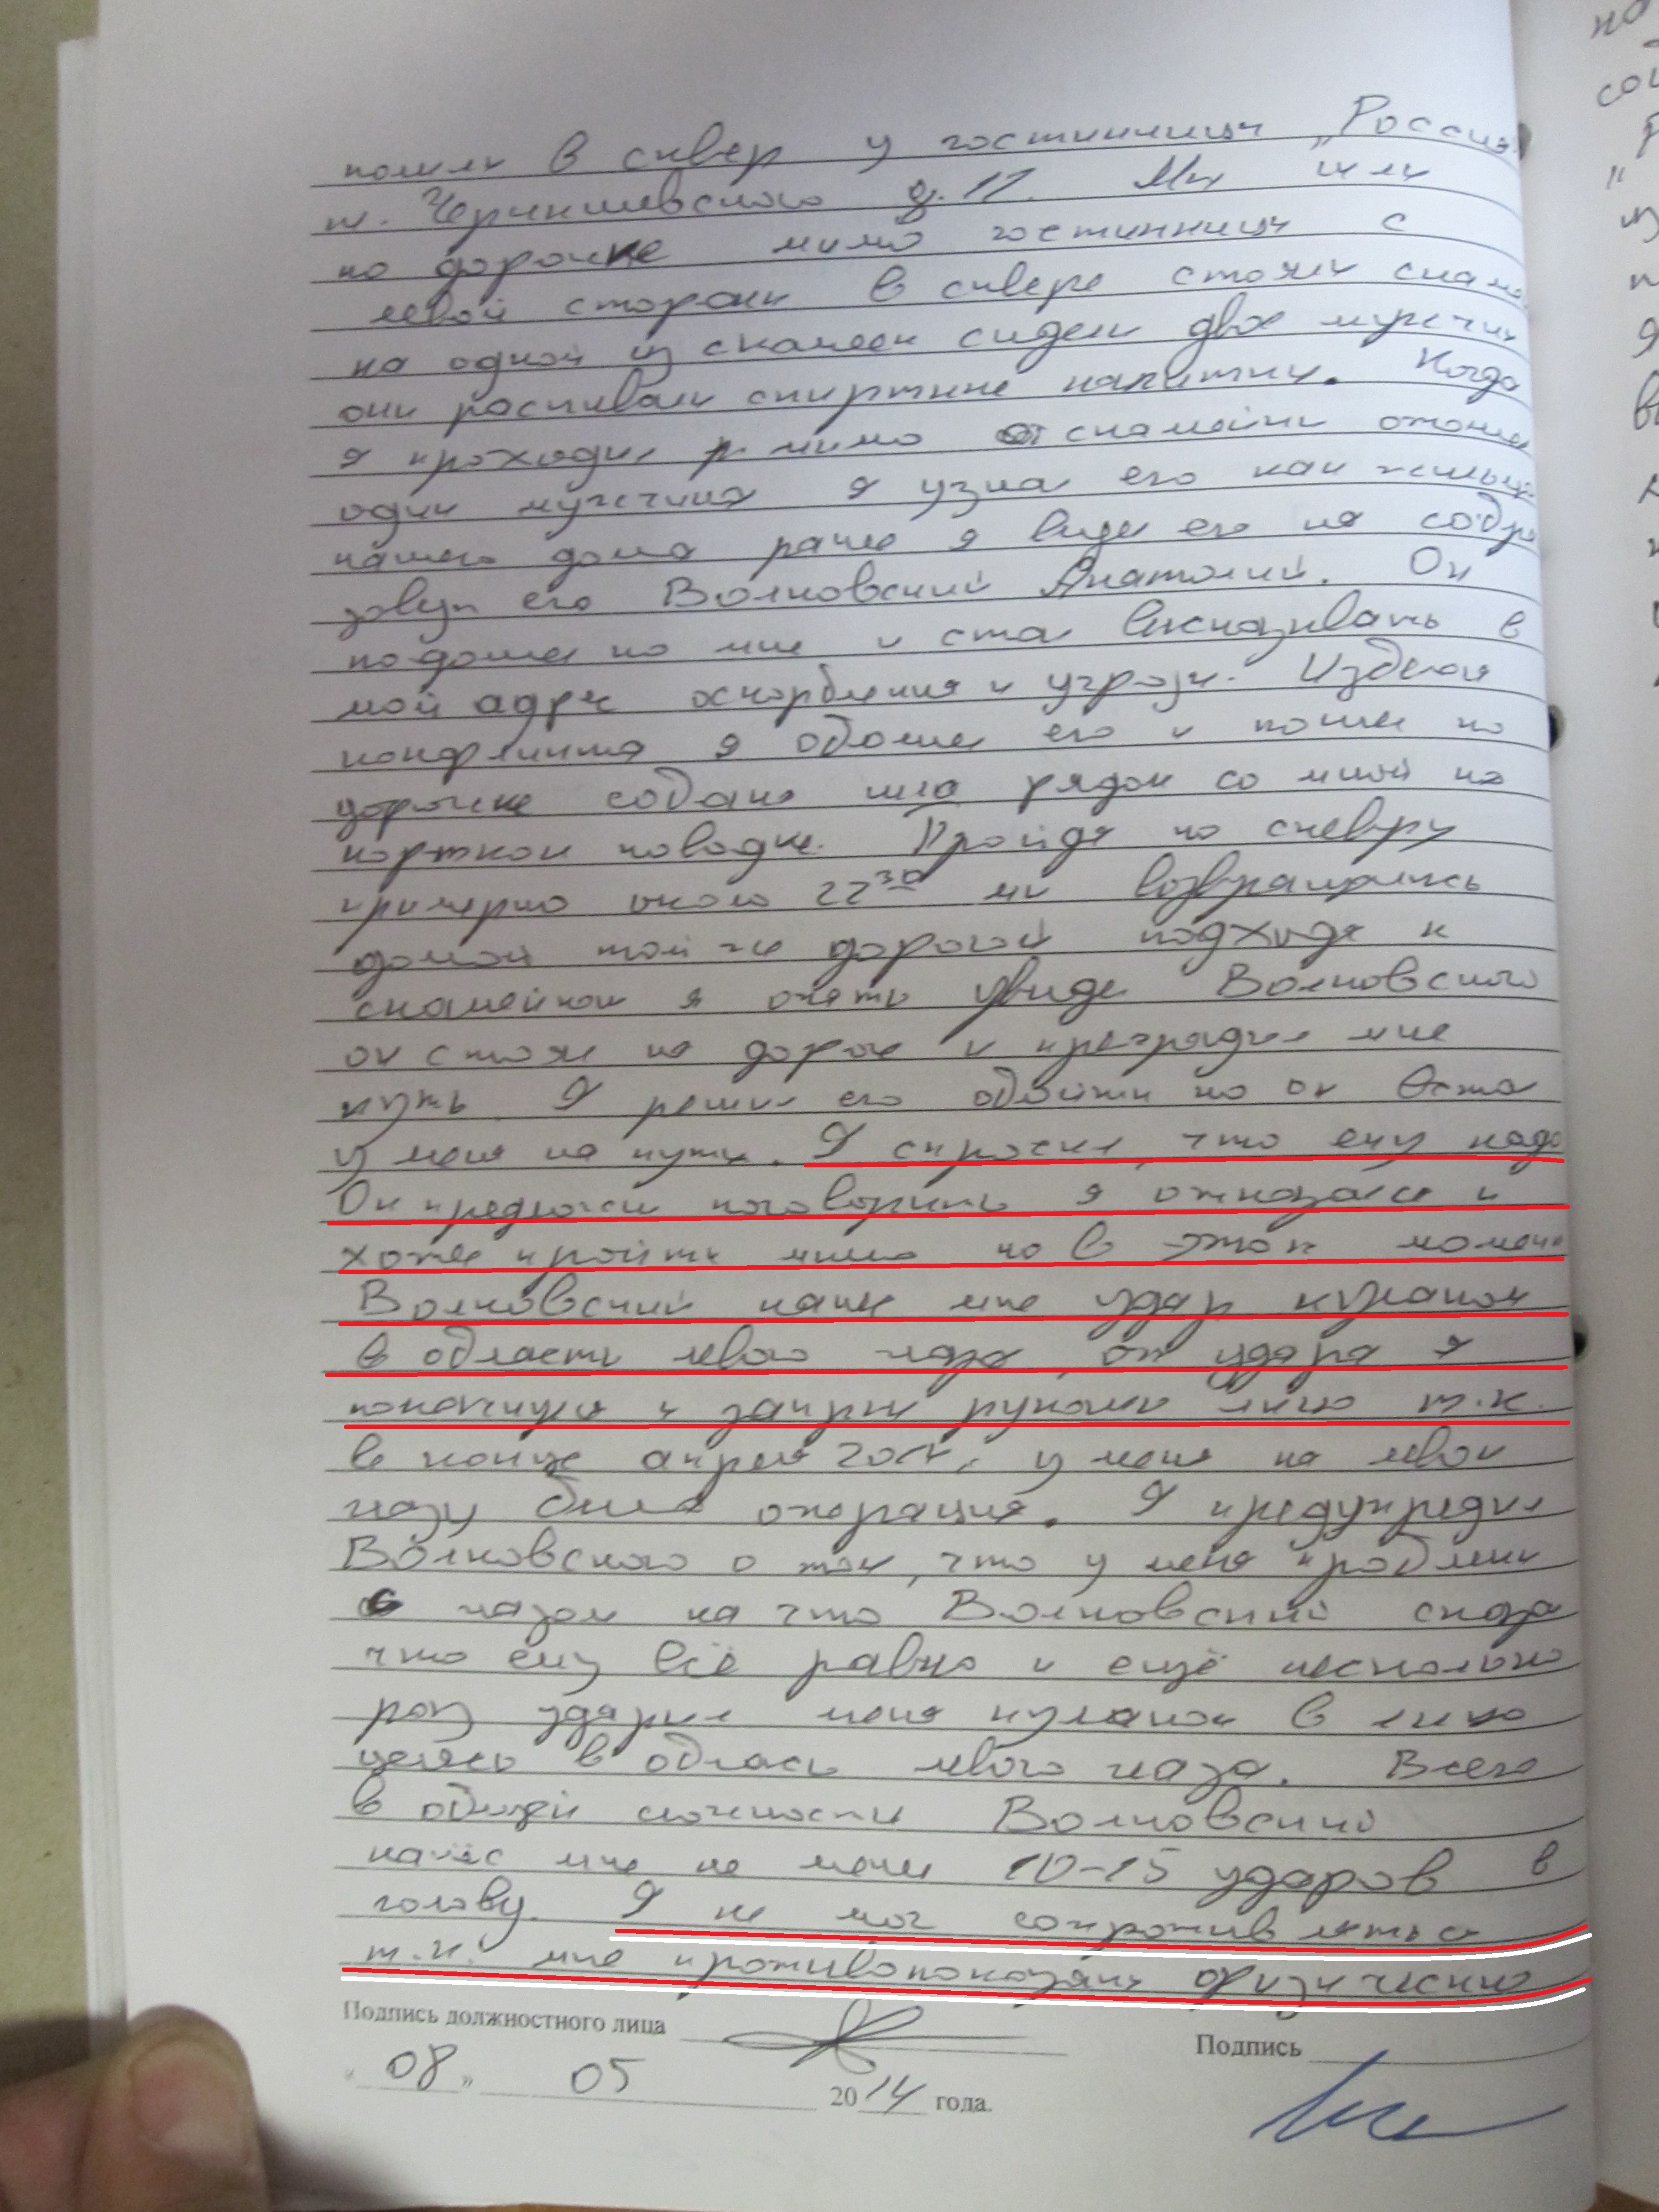 пошли в сквер у гостинницы „Россия
пл. Чернышевского д.11. Мы шли
по дорожке мимо гостинницы с
левой стороны в сквере стояли скаме
на одной из скамеек сидели двое мужчин
они распивали спиртные напитки. Когда
я проходил мимо от скамейки отошел
один мужчина я узнал его как жильца
нашего дома ранее я видел его на собра
зовут его Волковский Анатолий. Он
подошел ко мне и стал высказывать в
мой адрес оскорбления и угрозы. Избегая
конфликта я обошел его и пошел по
дорожке собака шла рядом со мной на
коротком поводке. Пройдя по скверу
примерно около 22³⁰ мы возвращались
домой той же дорогой подходя к
скамейкой я опять увидел Волковского
он стоял на дороге и преградил мне
путь. Я решил его обойти но он встал
у меня на пути. Я спросил, что ему надо
Он предложил поговорить я отказался и
хотел пройти мимо но в этот момент
Волковский нанес мне удар кулаком
в область левого глаза, от удара я
покачнулся и закрыл руками лицо т.к.
в конце апреля 2014г. у меня на левом
глазу была операция. Я предупредил
Волковского о том, что у меня проблемы
с глазом на что Волковский сказал
что ему всё равно и ещё несколько
раз ударил меня кулаком в лицо
целясь в область левого глаза. Всего
в общей сложности Волковский
нанёс мне не менее 10-15 ударов в
голову. Я не мог сопротивляться
т.к. мне противопоказаны физические
Подпись должностного лица
Подпись
« 08 » 05 2014 года.